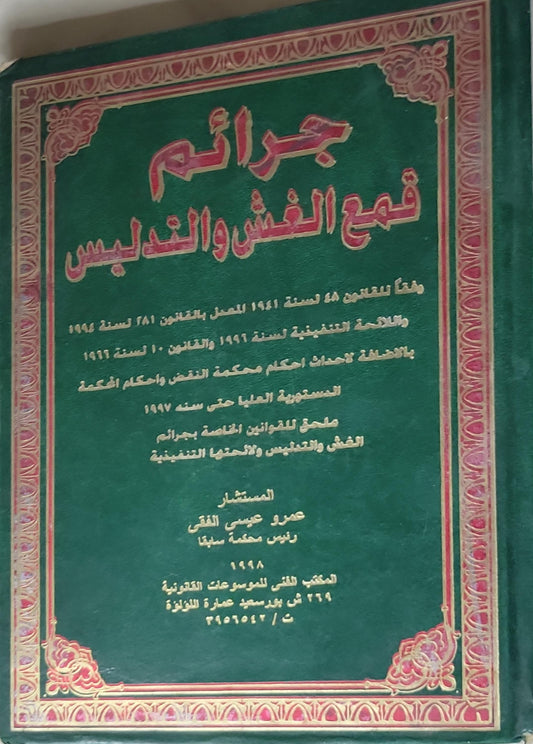 جرائم
قمع الغش والتدليس
وفقاً للقانون ٤٨ لسنة ١٩٤١ المعدل بالقانون ٢٨١ لسنة ١٩٩٤
واللائحة التنفيذية لسنة ١٩٩٦ والقانون ١٠ لسنة ١٩٦٦
بالاضافة لاحداث احكام محكمة النقض واحكام المحكمة
الدستورية العليا حتى سنه ١٩٩٧
ملحق للقوانين الخاصة بجرائم
الغش والتدليس ولائحتها التنفيذية
المستشار
عمرو عيسى الفقى
رئيس محكمة سابقا
١٩٩٨
المكتب الفنى للموسوعات القانونية
٢٦٩ ش بورسعيد عمارة اللؤلؤة
ت / ٣٩٥٦٥٤٢